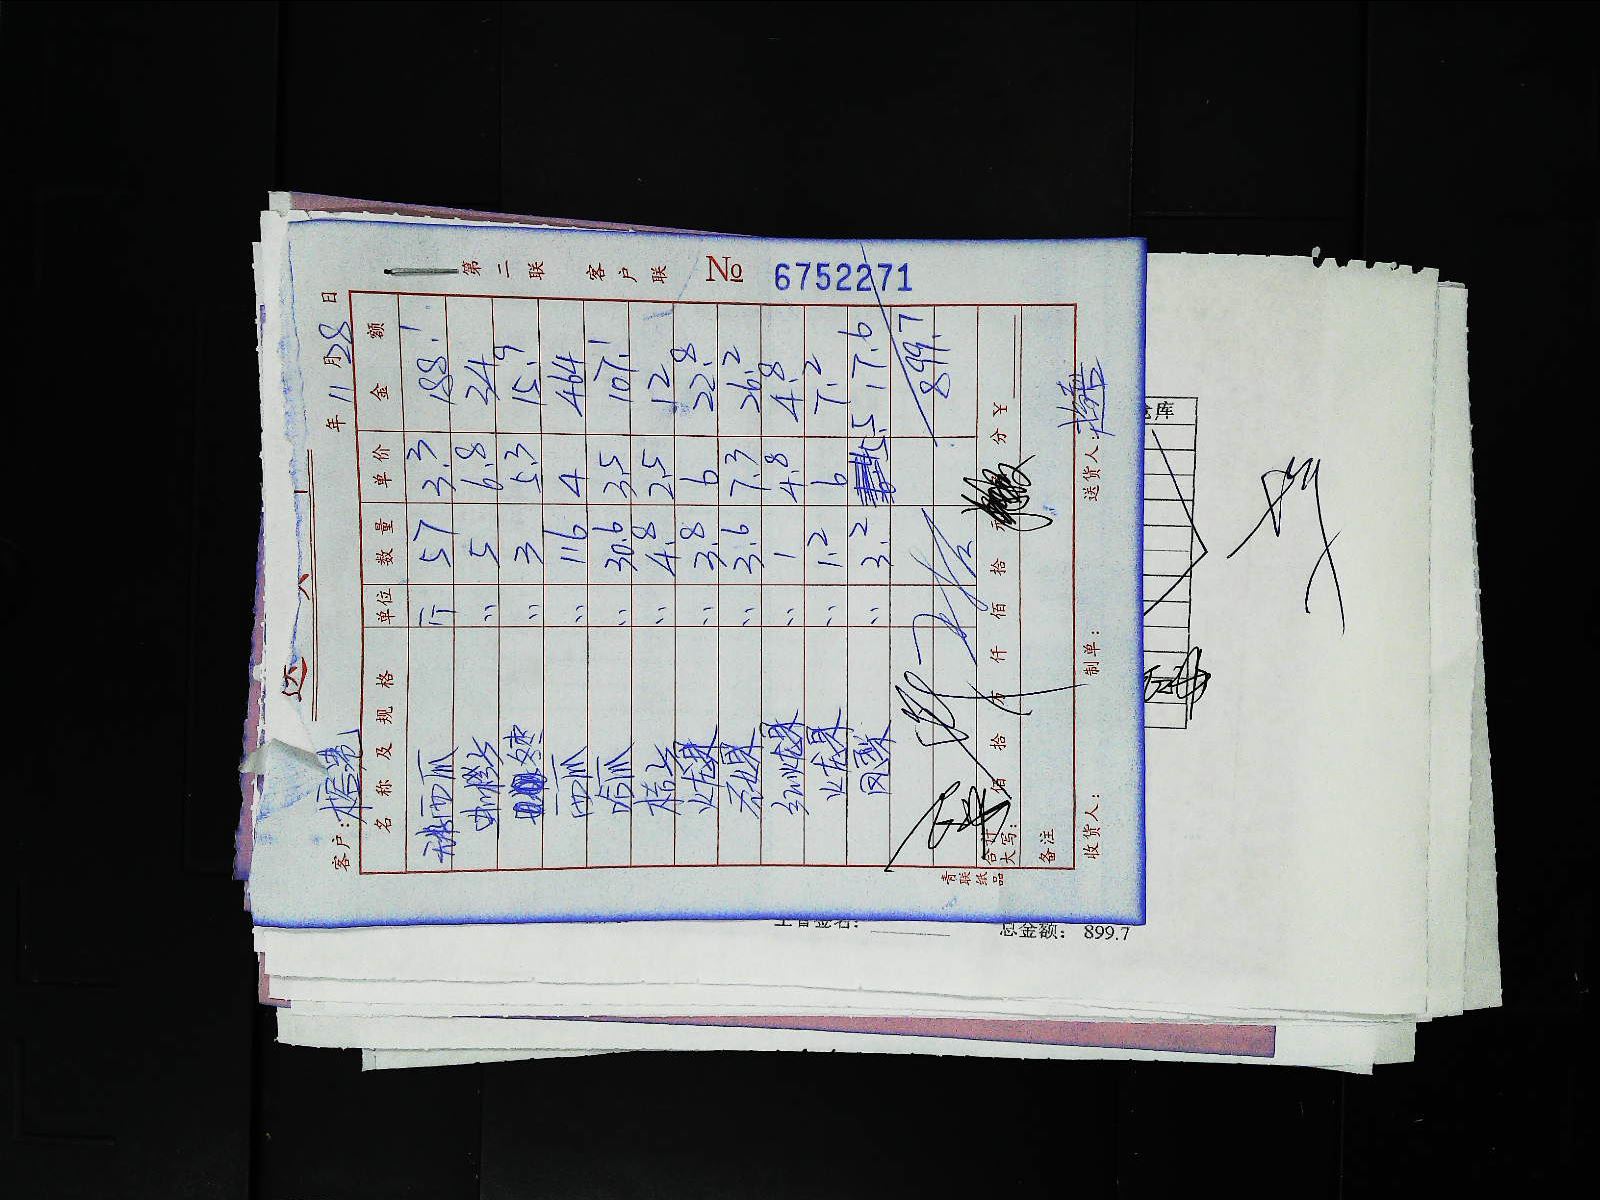 第二联 客户联 № 6752271
年 11 月 28 日
客户:
名称及规格 单位 数量 单价 金额
西瓜 斤 57 3.3 188.1
橙 〃 5 6.8 34
冬枣 〃 3 5.3 15.9
西瓜 〃 116 4 464
哈瓜 〃 30.6 3.5 107.1
桔 〃 4.8 2.5 12
火龙果 〃 3.8 6 22.8
〃 3.6 7.3 26.2
火龙果 〃 1 4.8 4.8
火龙果 〃 1.2 6 7.2
〃 3.2 5.5 17.6
899.7
合计
大写: 佰 拾 万 仟 佰 拾 元 分 ¥
备注
收货人: 制单: 送货人:
青联纸品
仓库
总金额: 899.7